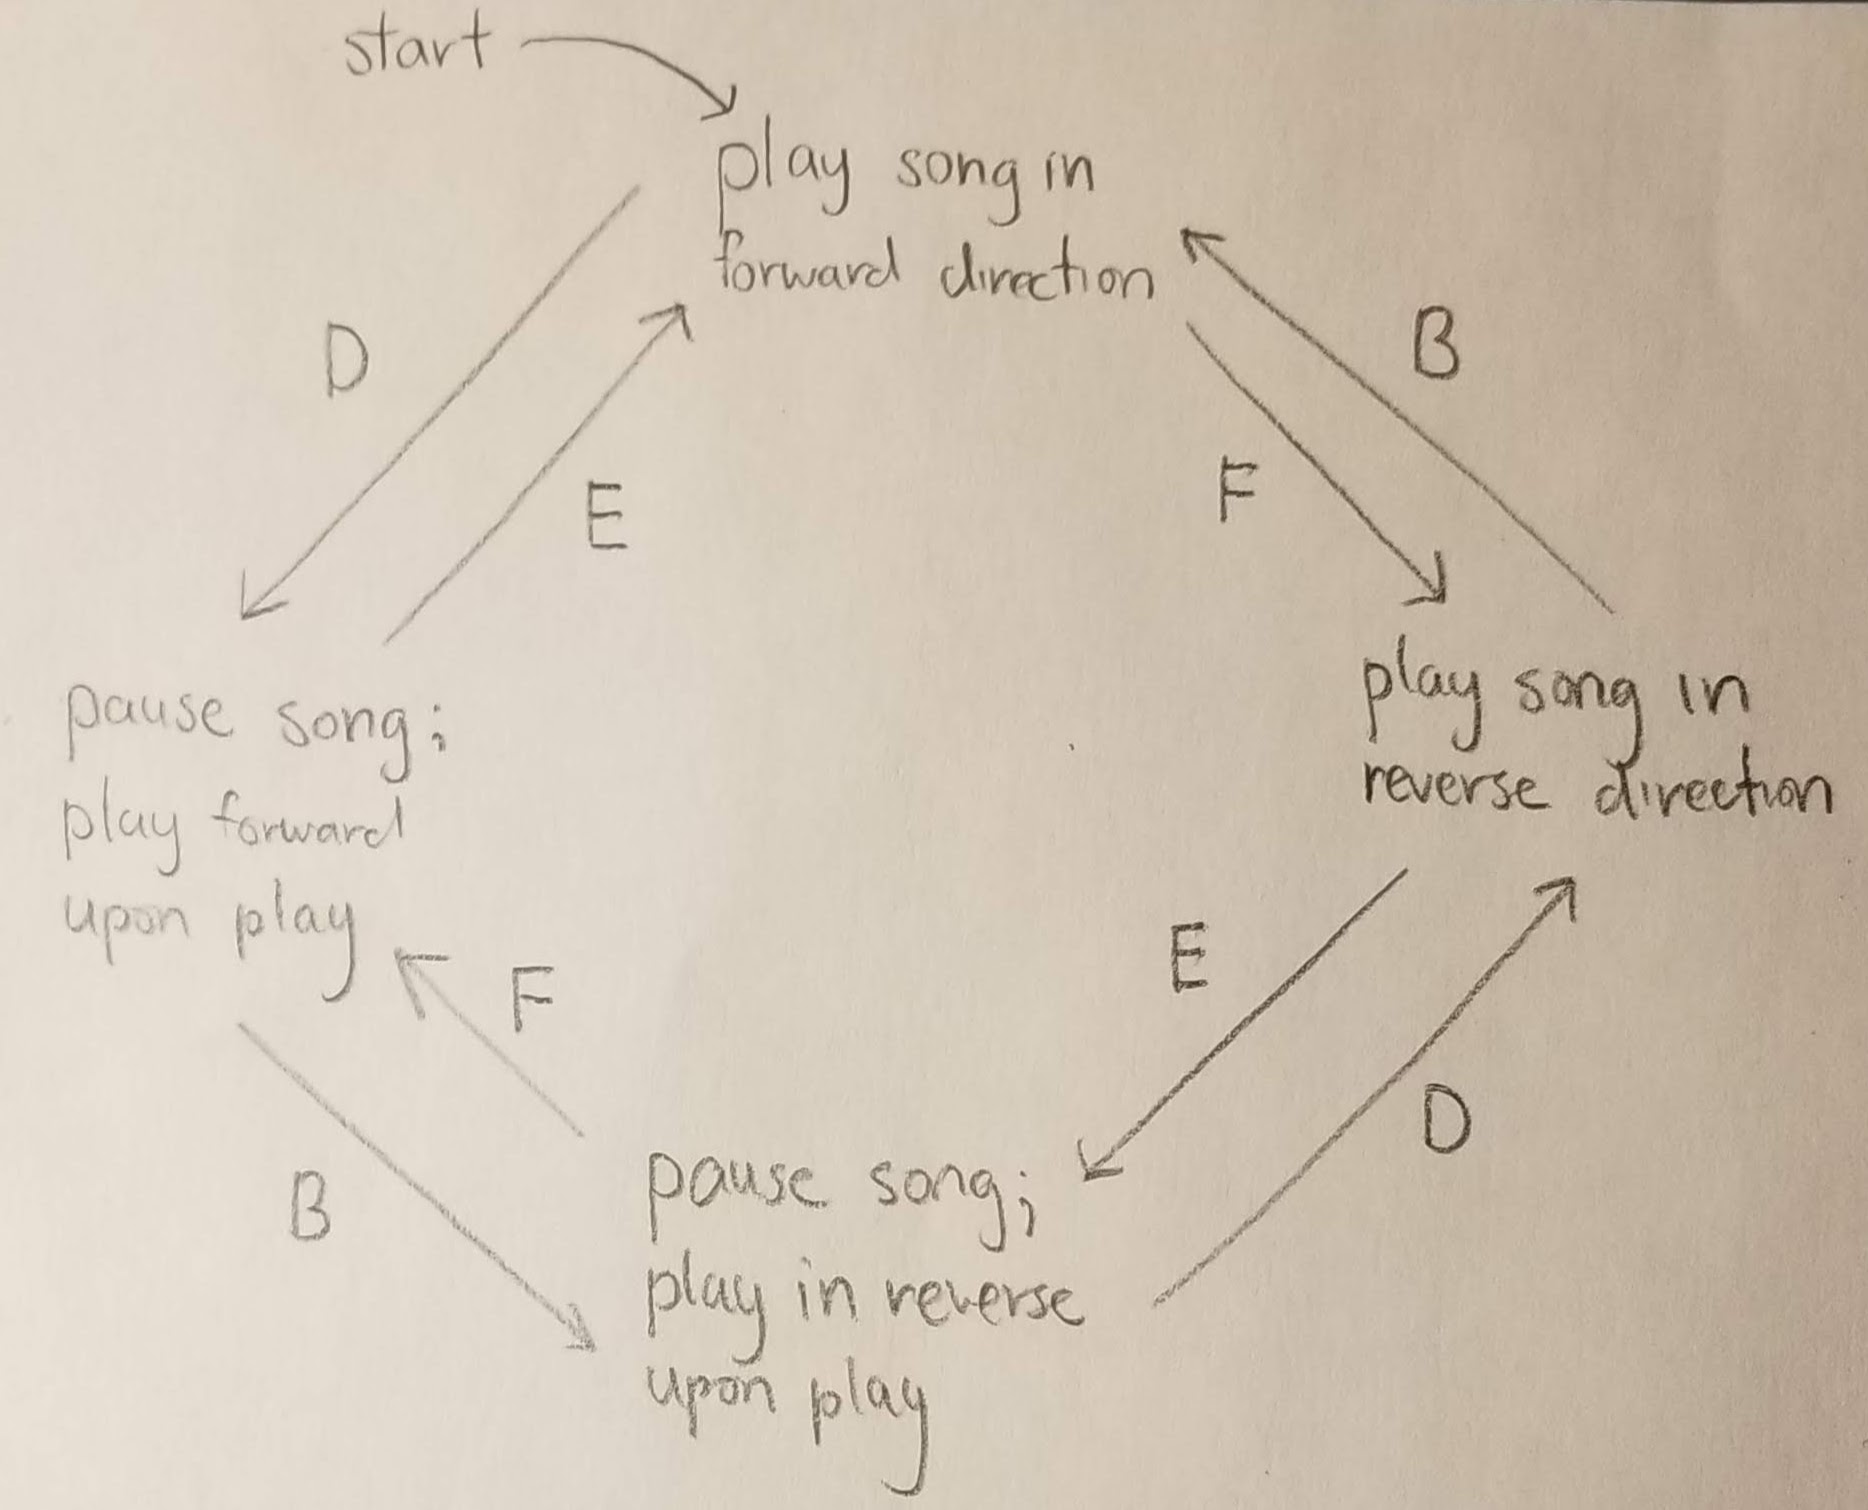 start
play song in
forward direction
D
B
E
F
pause song;
play forward
upon play
play song in
reverse direction
F
E
B
D
pause song;
play in reverse
upon play